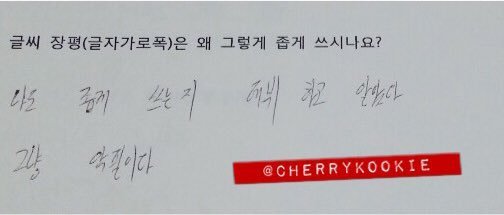 글씨 장평(글자가로폭)은 왜 그렇게 좁게 쓰시나요?
나도 좁게 쓰는지 하고 알았다
그냥 악필이다
@CHERRYKOOKIE